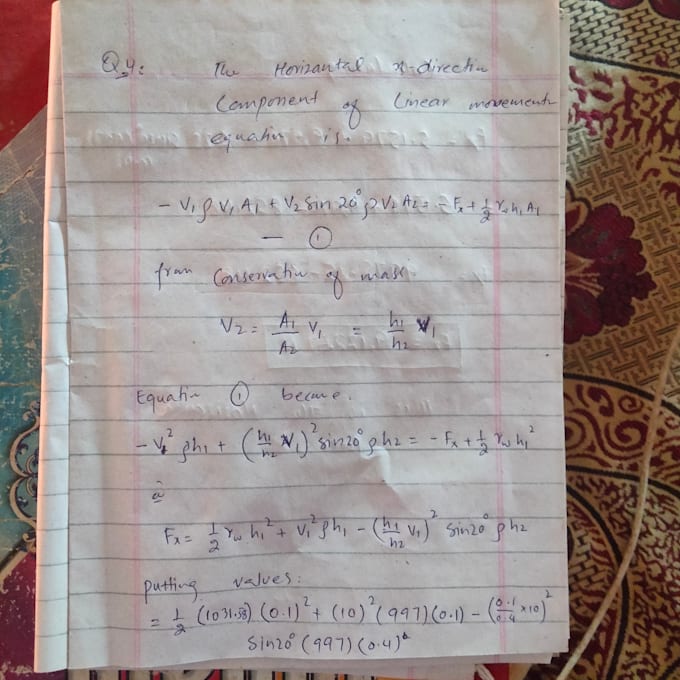 Q.4: The Horizantal x-directin
Component of Linear movement
equatin is.
- V₁ρV₁A₁ + V₂ Sin 20° ρV₂A₂ = -Fₓ + ½ r_w h₁A₁
— ①
from Conservatin of mass.
V₂ = A₁/A₂ V₁ = h₁/h₂ V₁
Equatin ① became.
- V₁² ρh₁ + (h₁/h₂ V₁)² sin20° ρh₂ = - Fₓ + ½ r_w h₁²
Fₓ = ½ r_w h₁² + V₁² ρh₁ - (h₁/h₂ V₁)² sin20° ρh₂
putting values:
= ½ (1031.58) (0.1)² + (10)² (997) (0.1) - (0.1/0.4 ×10)²
Sin20° (997) (0.4)